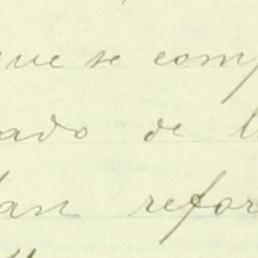 que se comp
ado de l
an refor